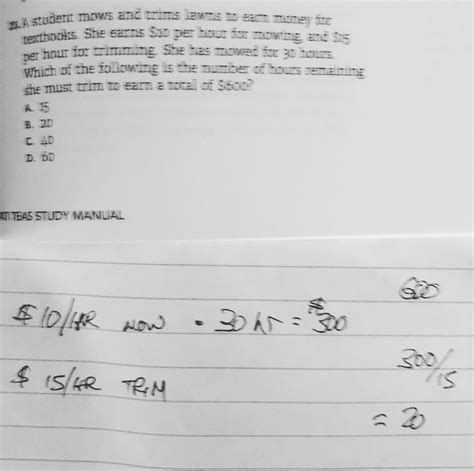 21. A student mows and trims lawns to earn money for
textbooks. She earns $10 per hour for mowing, and $15
per hour for trimming. She has mowed for 30 hours.
Which of the following is the number of hours remaining
she must trim to earn a total of $600?
A. 15
B. 20
C. 40
D. 60
ATI TEAS STUDY MANUAL
600
$10/HR MOW • 30 hr = $300
300/15
$ 15/HR TRIM
= 20